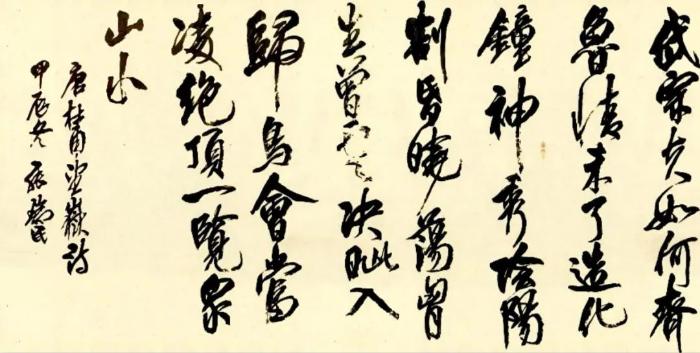 岱宗夫如何齊
魯情未了造化
鐘神秀陰陽
割昏曉蕩胷
生曾雲決眦入
歸鳥會當
凌絕頂一覽衆
山小
唐杜甫望嶽詩
甲辰冬張瑞民